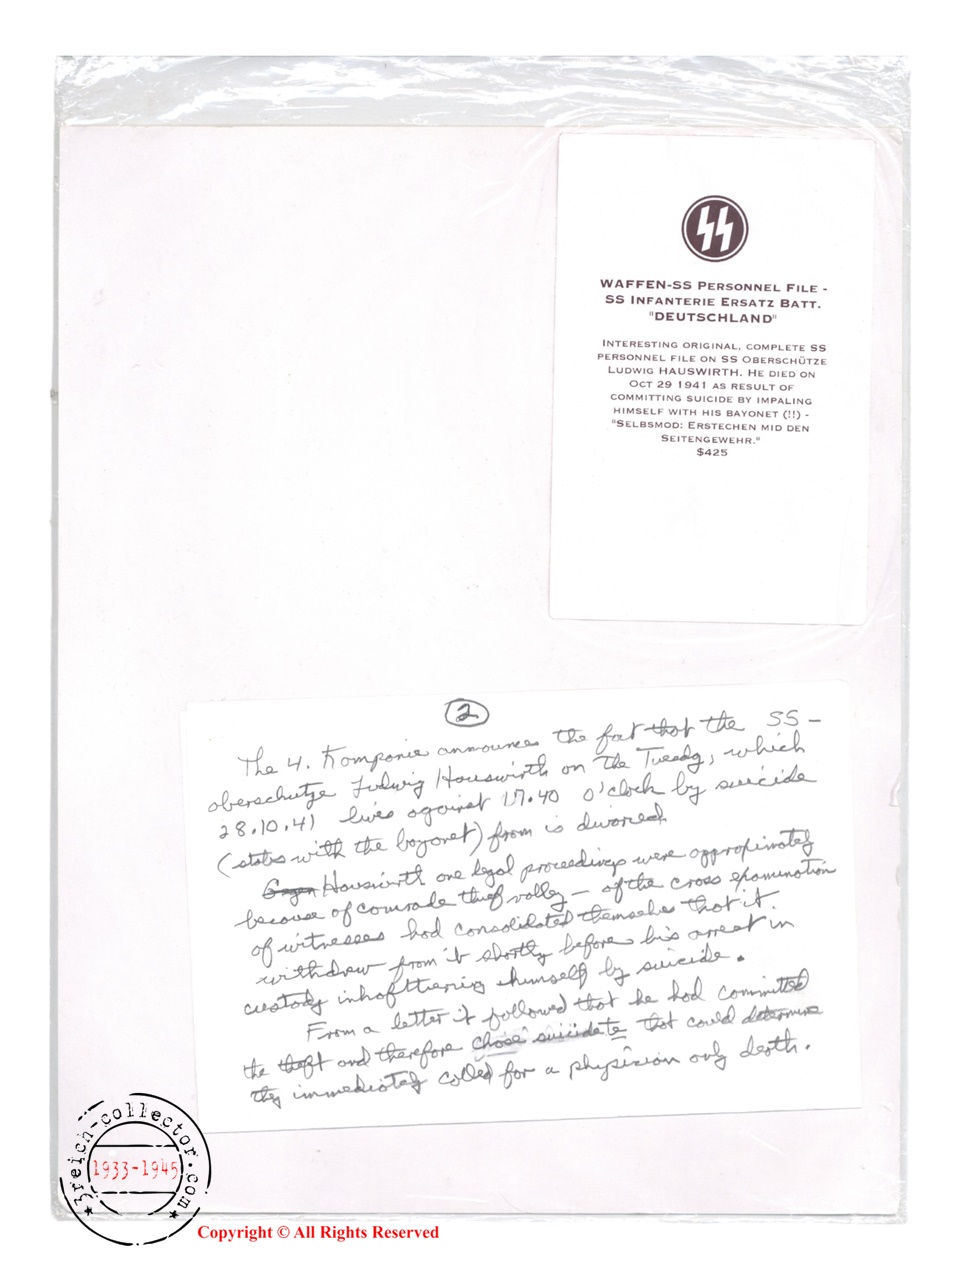 WAFFEN-SS PERSONNEL FILE -
SS INFANTERIE ERSATZ BATT.
"DEUTSCHLAND"
INTERESTING ORIGINAL, COMPLETE SS
PERSONNEL FILE ON SS OBERSCHÜTZE
LUDWIG HAUSWIRTH. HE DIED ON
OCT 29 1941 AS RESULT OF
COMMITTING SUICIDE BY IMPALING
HIMSELF WITH HIS BAYONET (!!) -
"SELBSMOD: ERSTECHEN MID DEN
SEITENGEWEHR."
$425
2
The 4. Kompanie announces the fact that the SS-
oberschutze Ludwig Hauswirth on the Tuesdg, which
28.10.41 lives against 17.40 o'clock by suicide
(stabs with the bayonet) from is divorced
Hauswirth one legal proceedings were approximately
because of comrade thief valley - of the cross examination
of witnesses had consolidated themselves that it.
withdrew from it shortly before his arrest in
custody himself by suicide.
From a letter it followed that he had committed
the theft and therefore chose suicide that could determine
they immediately called for a physician only death.
3reich-collector.com
1933-1945
Copyright © All Rights Reserved